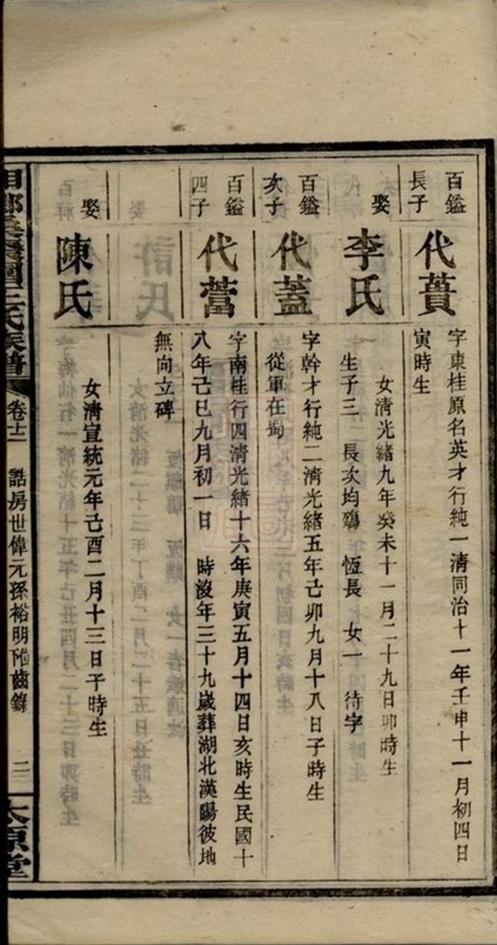 百鎰
長子
代蕡
字東桂原名英才行純一清同治十一年壬申十一月初四日
寅時生
娶
李氏
女清光緒九年癸未十一月二十九日卯時生
生子三 長次均殤 恆長 女一 待字
百鎰
次子
代蓋
字幹才行純二清光緒五年己卯九月十八日子時生
從軍在蜀
百鎰
四子
代蒿
字南桂行四清光緒十六年庚寅五月十四日亥時生民國十
八年己巳九月初一日 時沒年三十九歲葬湖北漢陽彼地
無向立碑
娶
陳氏
女清宣統元年己酉二月十三日子時生
氏族譜
卷十二
誥房世偉元孫裕明附齒錄
二
太原堂